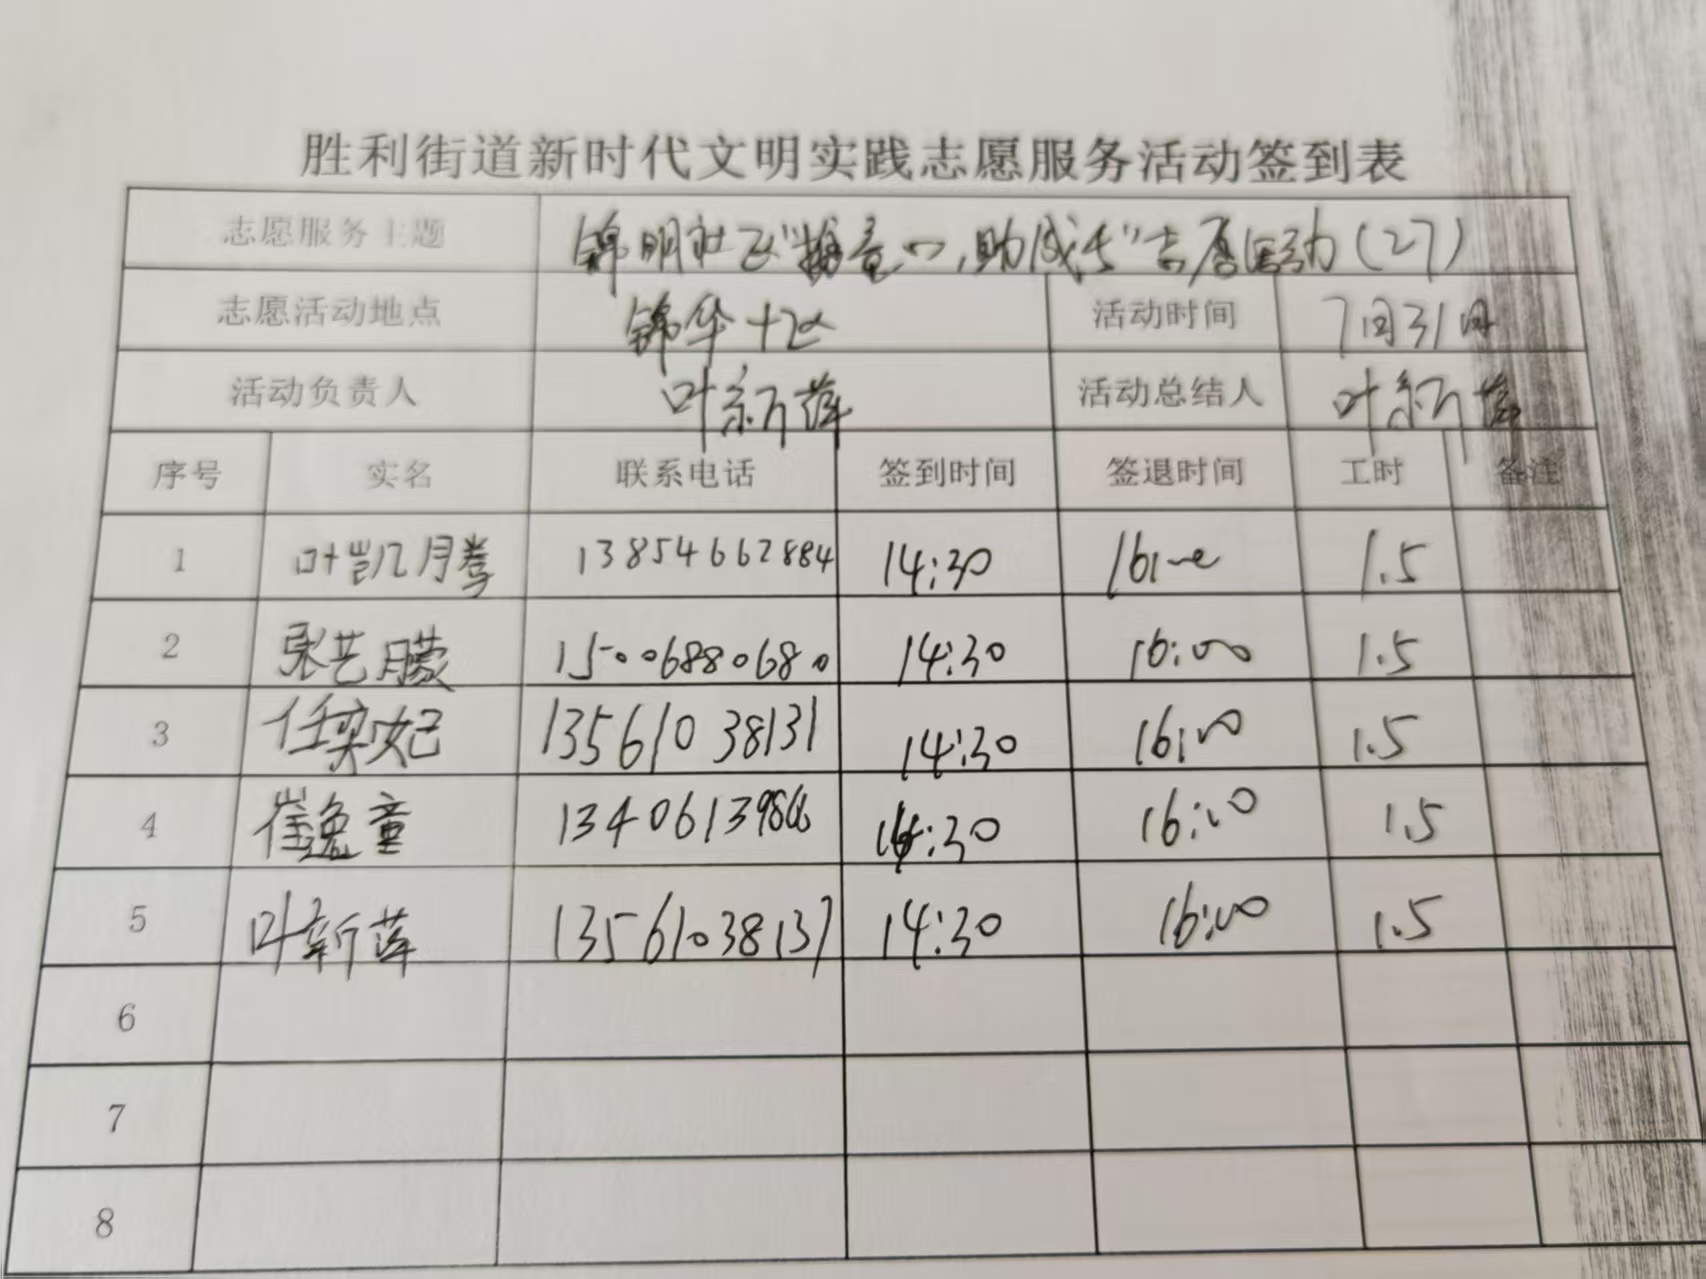 胜利街道新时代文明实践志愿服务活动签到表
志愿服务主题 锦明社区"童心,助成长"志愿活动(27)
志愿活动地点 锦华十区 活动时间 7月31日
活动负责人 叶新萍 活动总结人 叶新萍
序号 实名 联系电话 签到时间 签退时间 工时 备注
1 叶凯 13854662884 14:30 16:00 1.5
2 张艺朦 15006880680 14:30 16:00 1.5
3 任梁妃 13561038131 14:30 16:00 1.5
4 崔逸童 14:30 16:00 1.5
5 叶新萍 13561038137 14:30 16:00 1.5
6
7
8